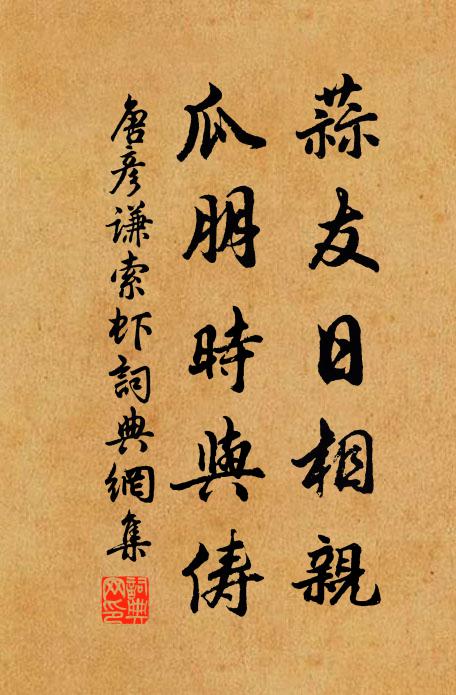 蒜友日相親
瓜朋時與儔
唐彥謙索虾詞典網集
詞典網印